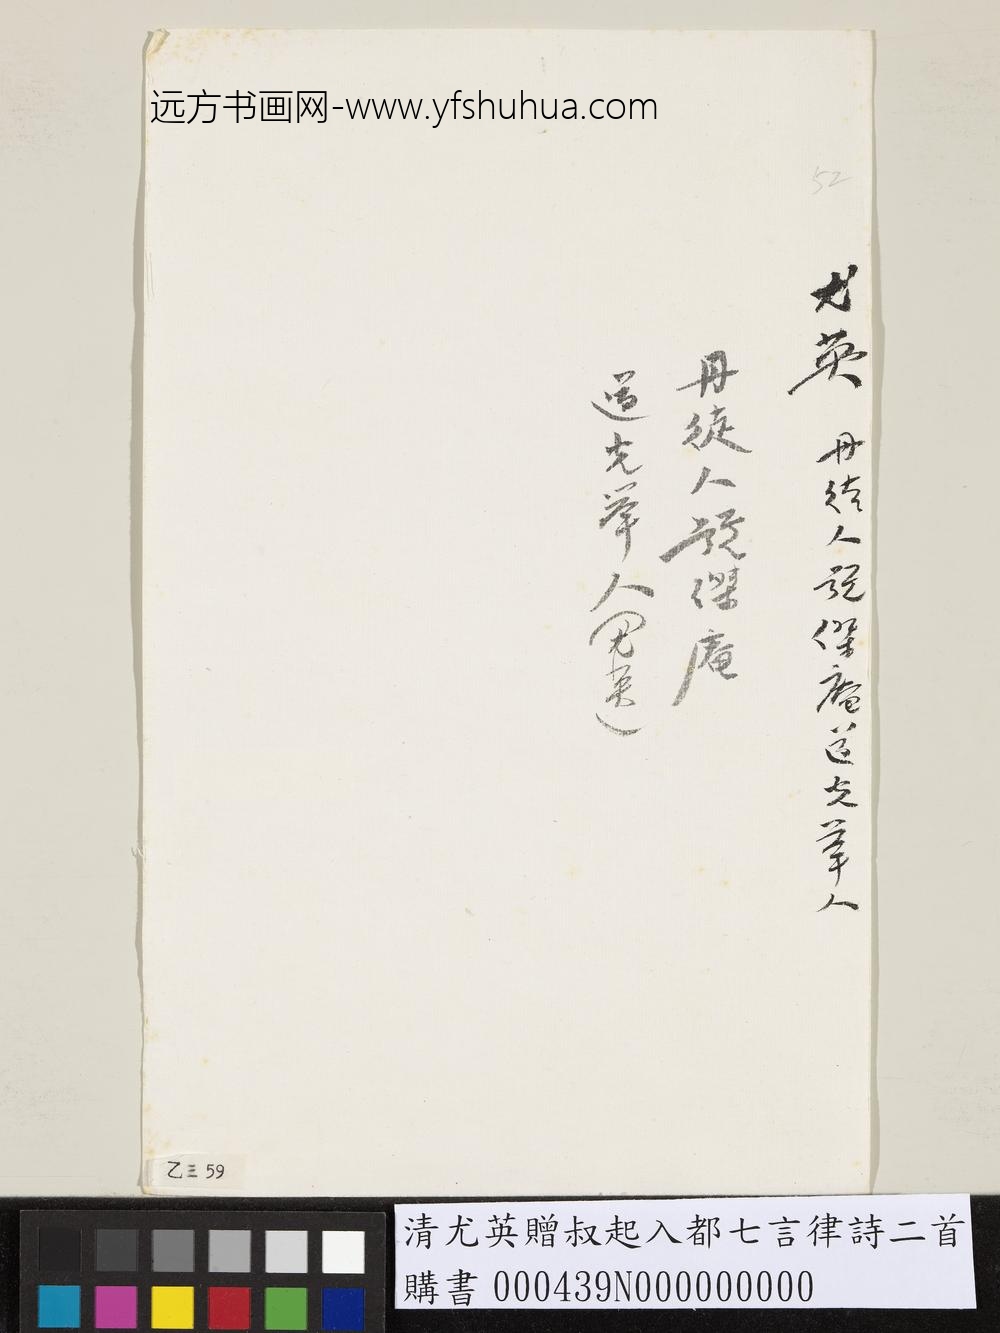 远方书画网-www.yfshuhua.com
52
尤英 丹徒人號傑庵道光举人
丹徒人號傑庵
道光举人
乙三 59
清尤英贈叔起入都七言律詩二首
購書 000439N000000000